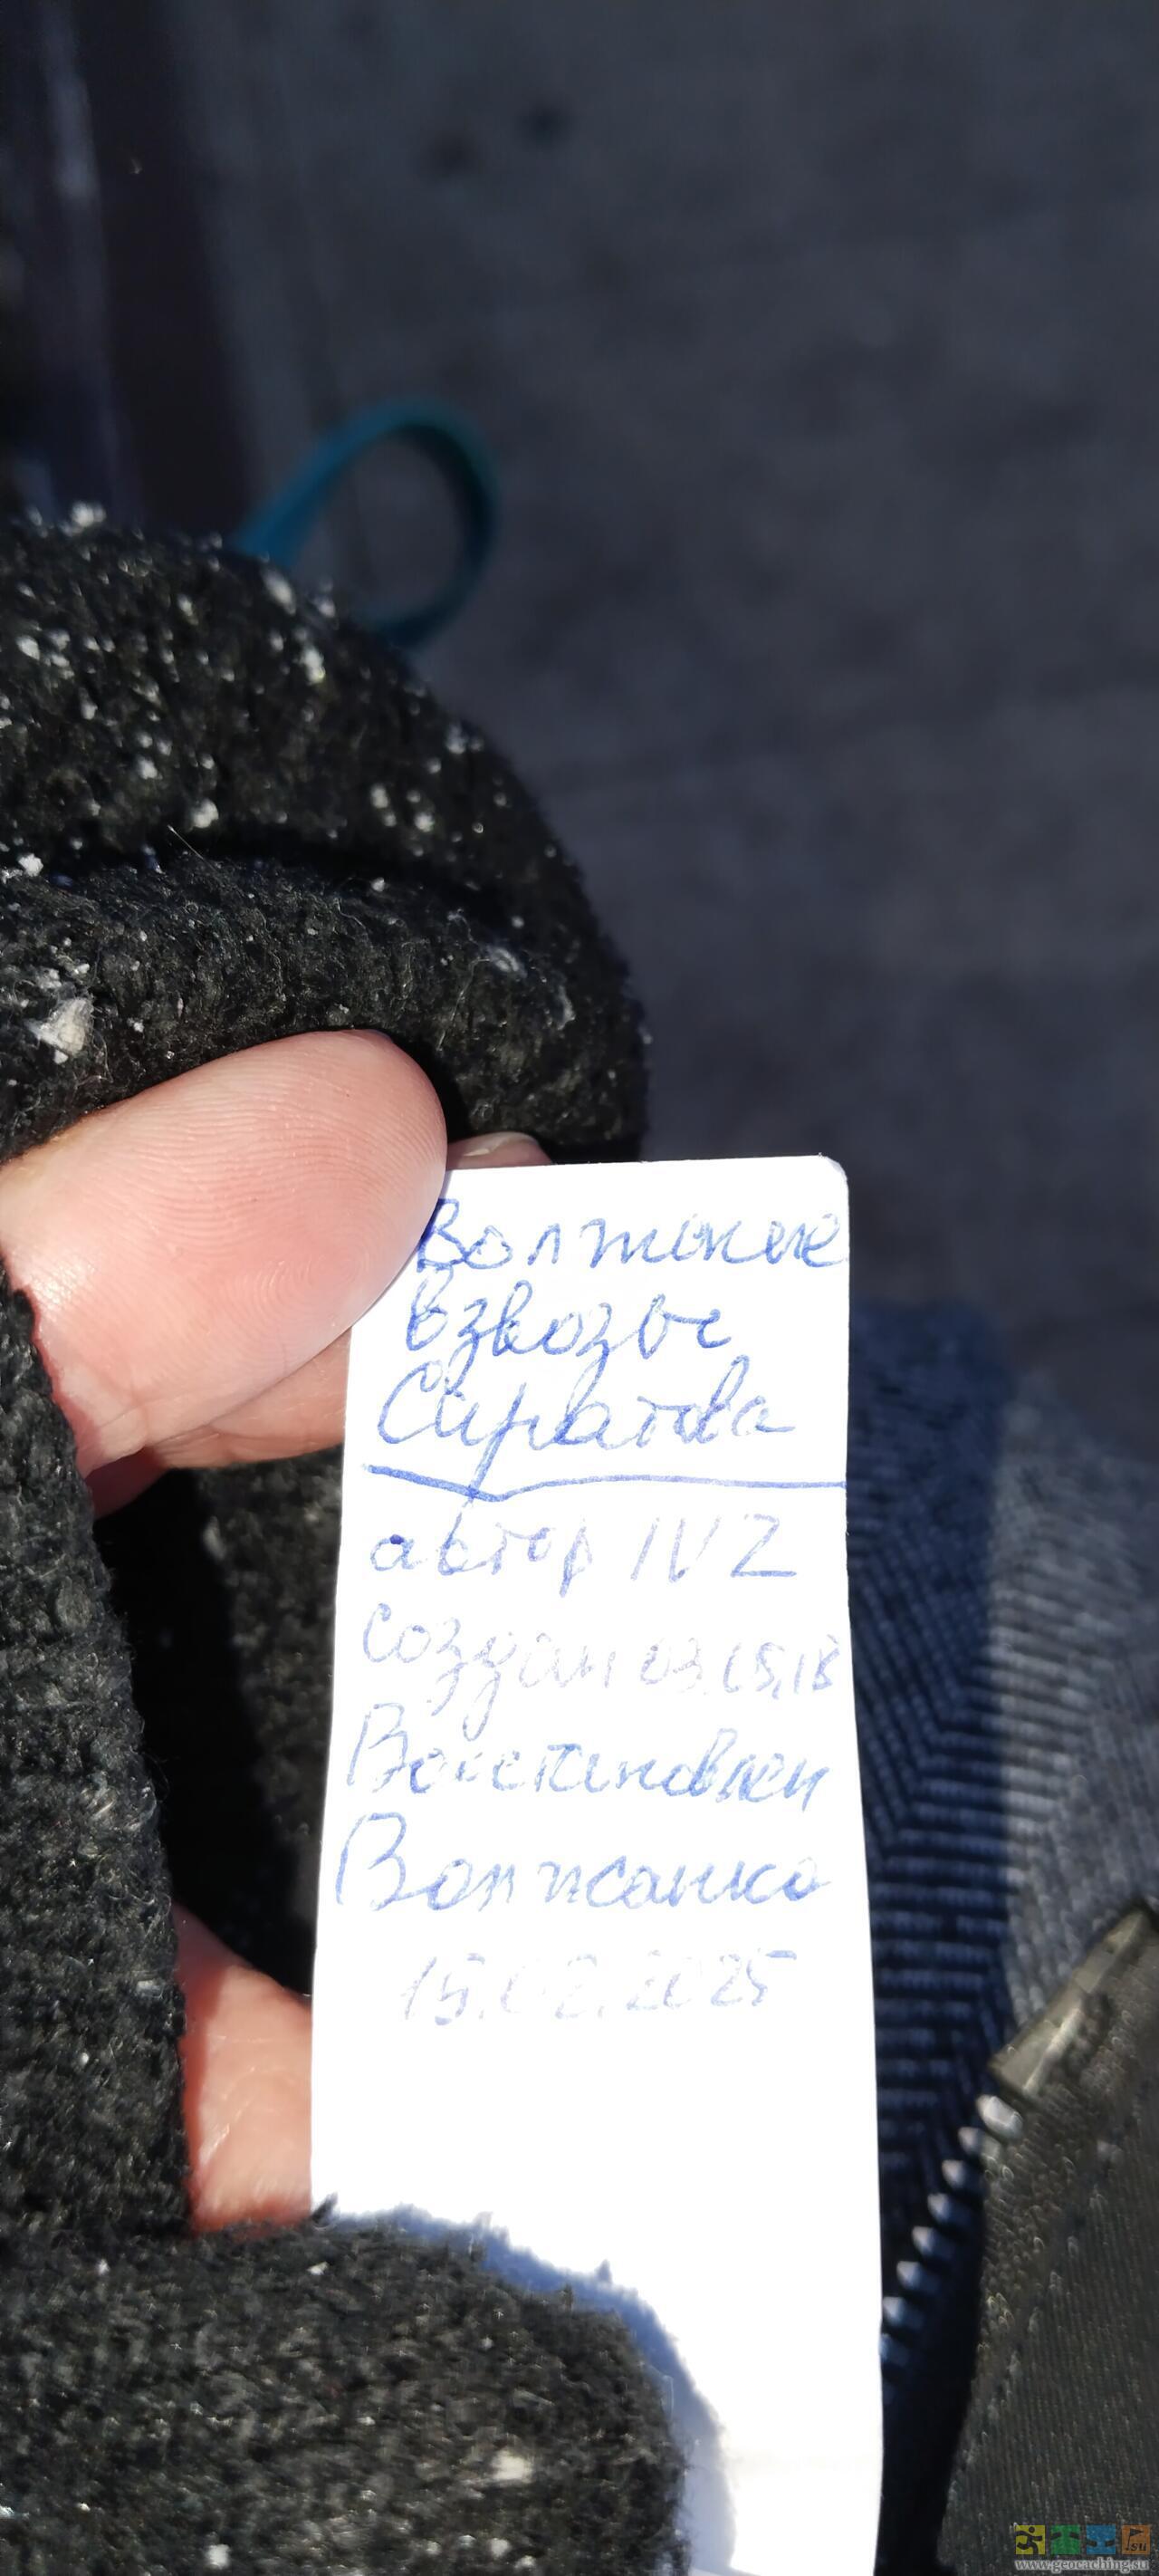 Волжские
взвозы
Саратова
автор IVZ
создан 03.05.18
Восстановлен
Волжанка
15.02.2025
.su
www.geocaching.su